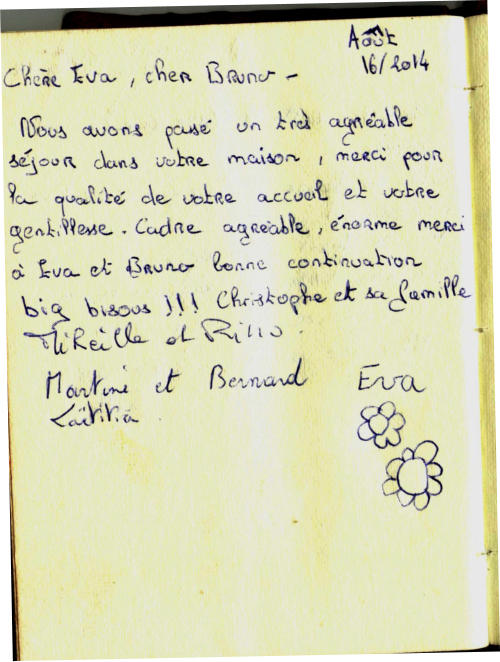 Août
16/2014
Chère Eva, cher Bruno -
Nous avons passé un très agréable
séjour dans votre maison, merci pour
la qualité de votre accueil et votre
gentillesse. Cadre agréable, énorme merci
à Eva et Bruno bonne continuation
big bisous !!! Christophe et sa famille
Mireille et
Martine et Bernard Eva
Laëtitia